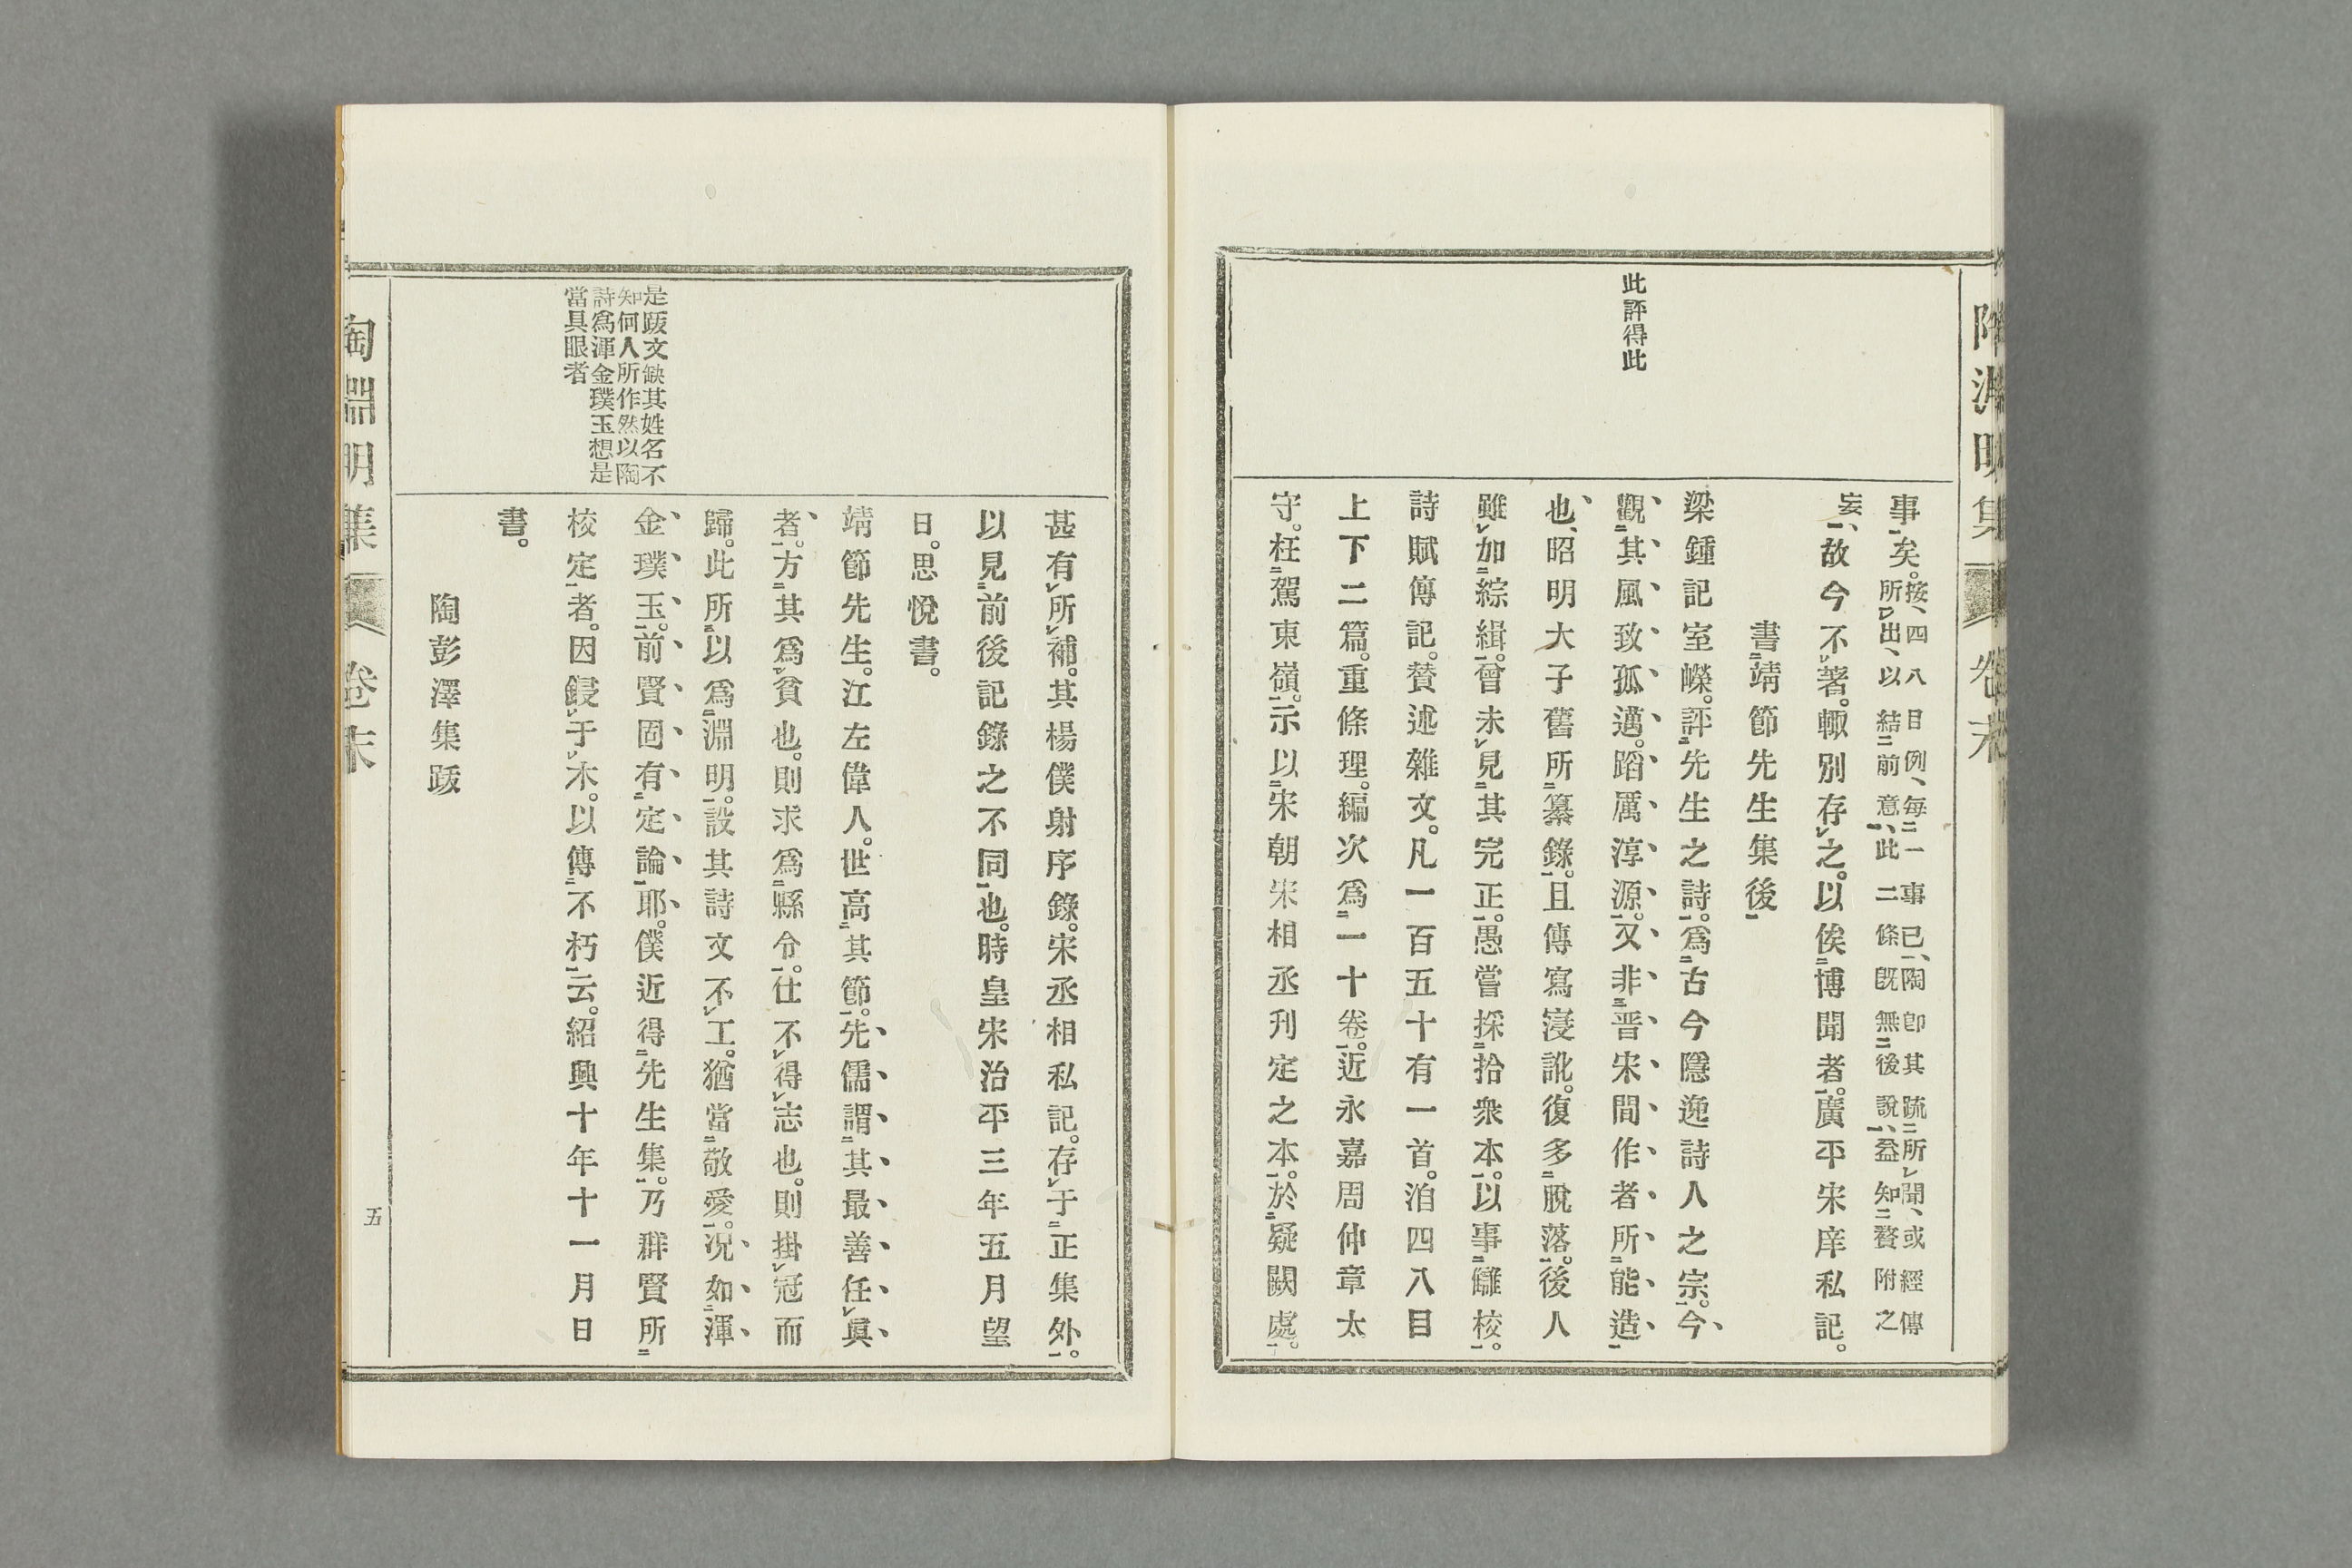 陶淵明集 卷末
此評得此
事矣。按、四八目例、每一事已、陶卽其疏所聞、或經傳
所出、以結前意、此二條既無後說、益知贅附之
妄、故今不著。輙別存之。以俟博聞者。廣平宋庠私記。
書靖節先生集後
梁鍾記室嶸。評先生之詩。爲古今隱逸詩人之宗。今
觀其風致孤邁。蹈厲淳源。又非晉宋間作者所能造
也、昭明大子舊所纂錄。且傳寫寖訛。復多脫落。後人
雖加綜緝。曾未見其完正。愚嘗採拾衆本。以事讎校。
詩賦傳記。賛述雜文。凡一百五十有一首。洎四八目
上下二篇。重條理。編次爲一十卷。近永嘉周仲章太
守。枉駕東嶺。示以宋朝宋相丞刋定之本。於疑闕處。
甚有所補。其楊僕射序錄。宋丞相私記。存于正集外。
以見前後記錄之不同也。時皇宋治平三年五月望
日。思悅書。
是跋文缺其姓名不
知何人所作然以陶
詩爲渾金璞玉想是
當具眼者
靖節先生。江左偉人。世高其節。先儒謂其最善任眞
者。方其爲貧也。則求爲縣令。仕不得志也。則掛冠而
歸。此所以爲淵明。設其詩文不工。猶當敬愛。況如渾
金璞玉。前賢固有定論耶。僕近得先生集。乃群賢所
校定者。因鋟于木。以傳不朽云。紹興十年十一月日
書。
陶彭澤集跋
陶淵明集 卷末 五